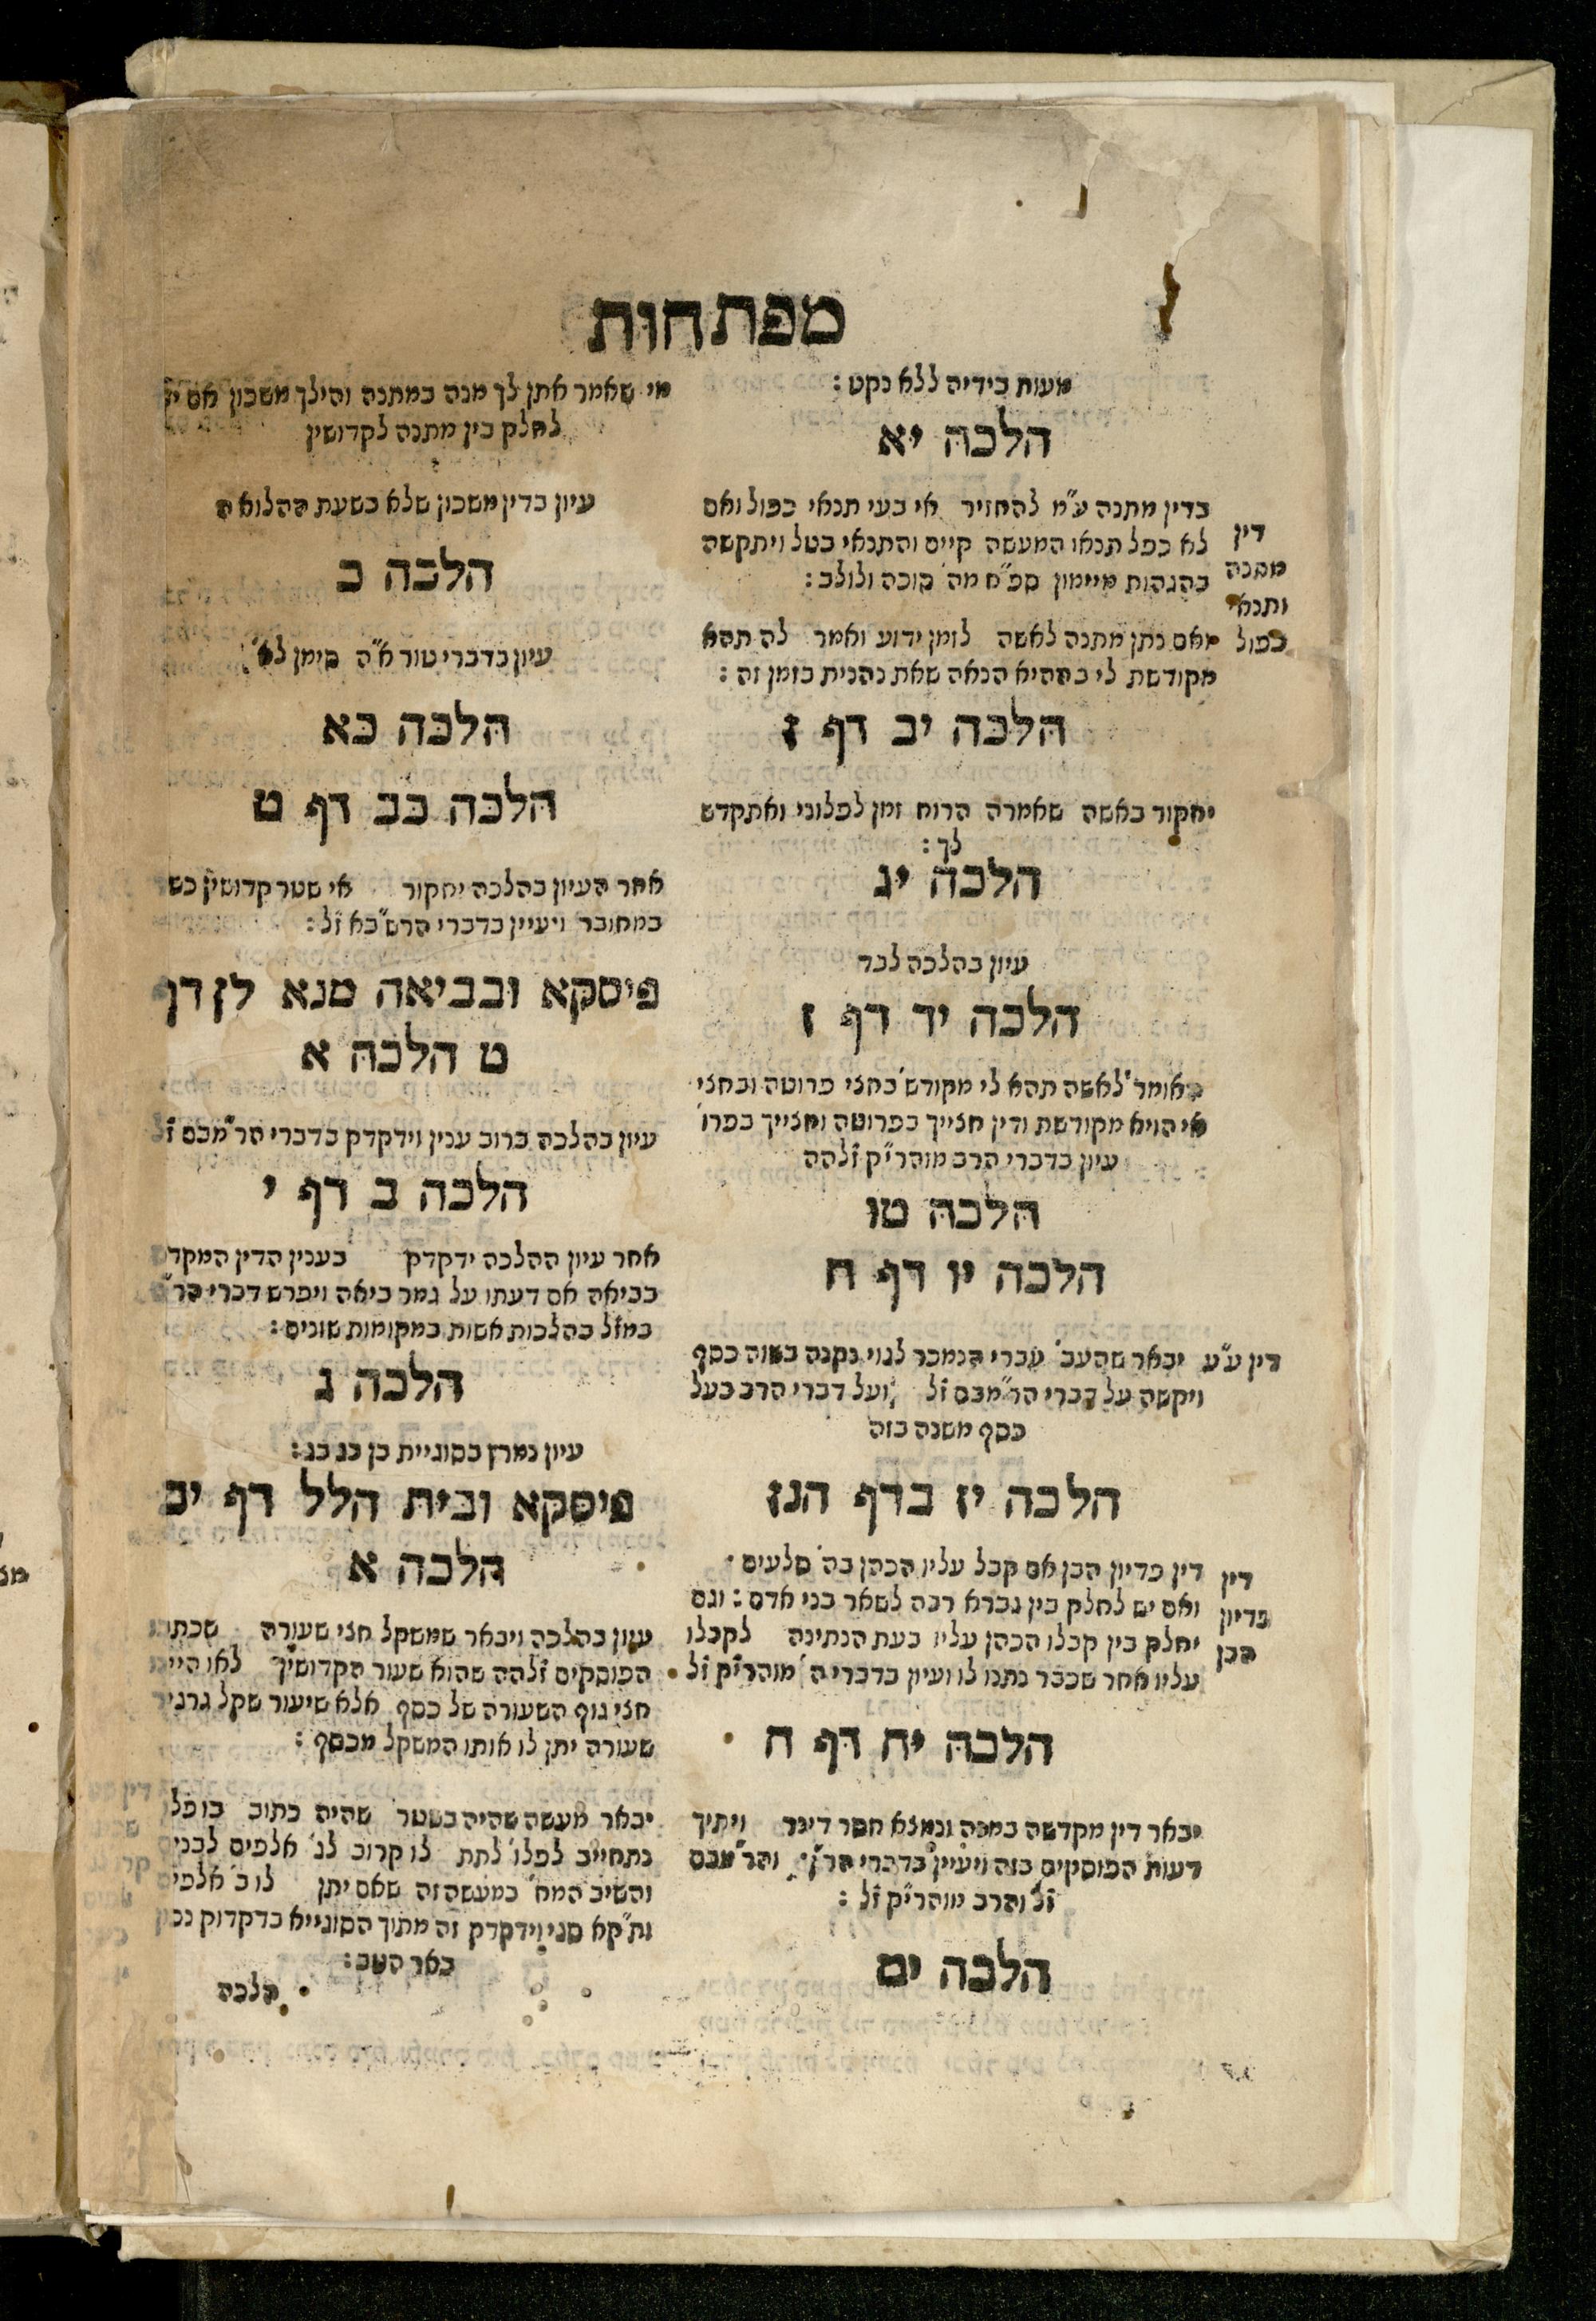 מפתחות
מעות בידיה ללא נקט :
הלכה יא
בדין מתנה ע״מ להחזיר אי בעי תנאי כפול ואם
לא כפל תנאו המעשה קיים והתנאי בטל ויתקשה
בהגהות מיימון ספ״ח מה׳ סוכה ולולב :
דין
מתנה
ותנאי
כפול
ואם נתן מתנה לאשה לזמן ידוע ואמר לה תהא
מקודשת לי בההיא הנאה שאת נהנית בזמן זה :
הלכה יב דף ז
יחקור באשה שאמרה הרוח זמן לפלוני ואתקדש
לך :
הלכה יג
עיון בהלכה לבד
הלכה יד דף ז
באומר לאשה תהא לי מקודש׳ בחצי פרוטה ובחצי
אי הויא מקודשת ודין חצייך בפרוטה וחצייך בפרו׳
עיון בדברי הרב מוהרי״ק ז״להה
הלכה טו
הלכה יו דף ח
דין ע״ע
יבאר שהעב׳ עברי הנמכר לגוי נקנה בשוה כסף
ויקשה על דברי הר״מבם ז״ל ועל דברי הרב בעל
כסף משנה בזה
הלכה יז בדף הנז
דין
פדיון
הבן
דין פדיון הבן אם קבל עליו הכהן בה׳ סלעים
ואם יש לחלק בין גברא רבה לשאר בני אדם : וגם
יחלק בין קבלו הכהן עליו בעת הנתינה לקבלו
עליו אחר שכבר נתנו לו ועיון בדברי ה׳ מוהרי״ק ז״ל
הלכה יח דף ח
יבאר דין מקדשה במנה ונמצא חסר דינר ויתיך
דעות הפוסקים בזה ויעיין בדברי הר״ן והר״מבם
ז״ל והרב מוהרי״ק ז״ל :
הלכה ים
מי שאמר אתן לך מנה במתנה והילך משכון אם י
לחלק בין מתנה לקדושין
עיון בדין משכון שלא בשעת ההלואה
הלכה כ
עיון בדברי טור א״ה סימן לא׳
הלכה כא
הלכה כב דף ט
אחר העיון בהלכה יחקור אי שטר קדושין כש
במחובר ויעיין בדברי הרש״בא ז״ל :
פיסקא ובביאה מנא לן דף
ט הלכה א
עיון בהלכה ברוב ענין וידקדק בדברי הר״מבם ז״ל
הלכה ב דף י
אחר עיון ההלכה ידקדק בענין הדין המקדש
בביאה אם דעתו על גמר ביאה ויפרש דברי הר״
במז״ל בהלכות אשות במקומות שונים :
הלכה ג
עיון נמרץ בסוגיית בן בג בג :
פיסקא ובית הלל דף יב
הלכה א
עיון בהלכה ויבאר שמשקל חצי שעורה שכתבו
הפוסקים ז״להה שהוא שעור הקדושין לאו היינו
חצי גוף השעורה של כסף אלא שיעור שקל גרגיר
שעורה יתן לו אותו המשקל מכסף :
יבאר מעשה שהיה בשטר שהיה כתוב בו פלו׳
נתחייב לפלו׳ לתת לו קרוב לג׳ אלפים לבנים
והשיב המח׳ במעשה זה שאם יתן לו ב׳ אלפים
ות״קא סגי וידקדק זה מתוך הסוגייא בדקדוק נכון
באר היטב :
הלכה